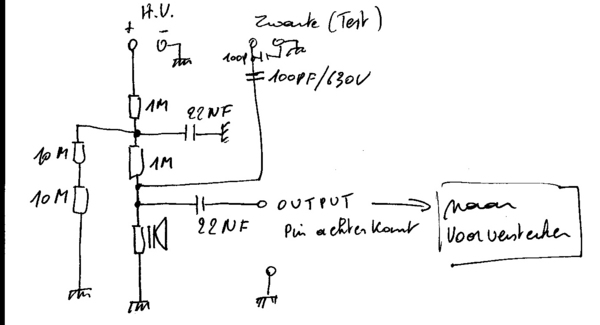 H.V.
+ -
Zwarte (Test)
100p
100PF/630V
1M
22NF
10M
1M
10M
22NF
OUTPUT
Pin achterkant
naar
Voorversterker